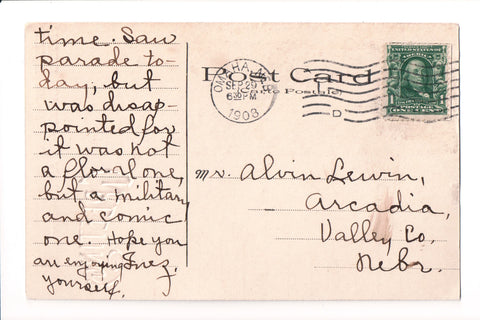 time. Saw
parade to-
day, but
was disap-
pointed for
it was not
a floral one,
but a military
and comic
one. Hope you
are enjoying
yourself.
Inez.
Post Card
(Carte Postale)
OMAHA, NEB.
SEP 29
6 PM
1908
D
1
Mr. Alvin Lewin,
Arcadia,
Valley Co,
Nebr.